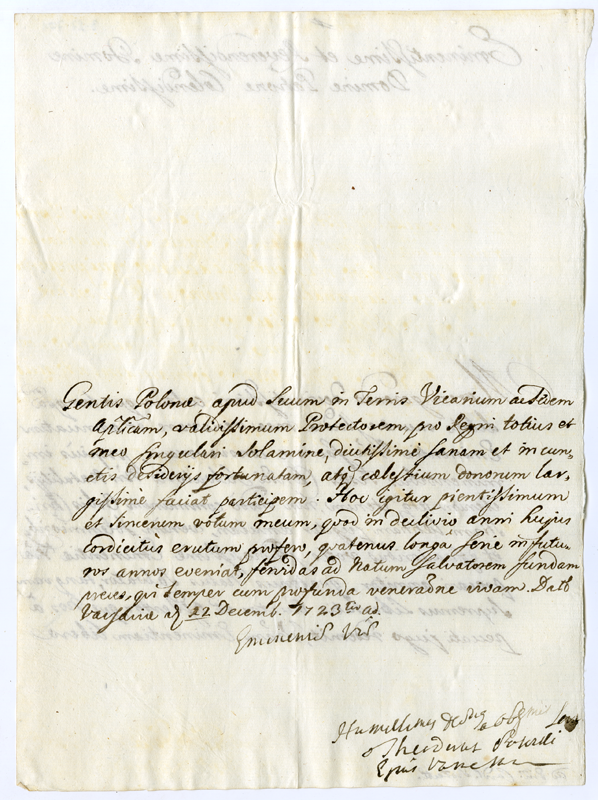 Gentis Polonæ apud Suum in Terris Vicarium ac Sedem
Aplicam, validissimum Protectorem, pro Regni totius et
meo singulari solamine, diutissimè sanam et in cun,
ctis desiderijs fortunatam, atq cælestium donorum lar,
gissimè faciat participem. Hoc igitur pientissimum
et sincerum votum meum, quod in declivio anni hujus
cordicitùs erutum profero, quatenus longâ serie in futu,
ros annos eveniat, fervidas ad Natum Salvatorem fundam
preces, qui semper cum profunda veneraõne vivam. Datt
Varsaviæ d 22 Decemb. 1723
Eminentiæ Vræ
Humillimus
Theodorus Potocki
Epus